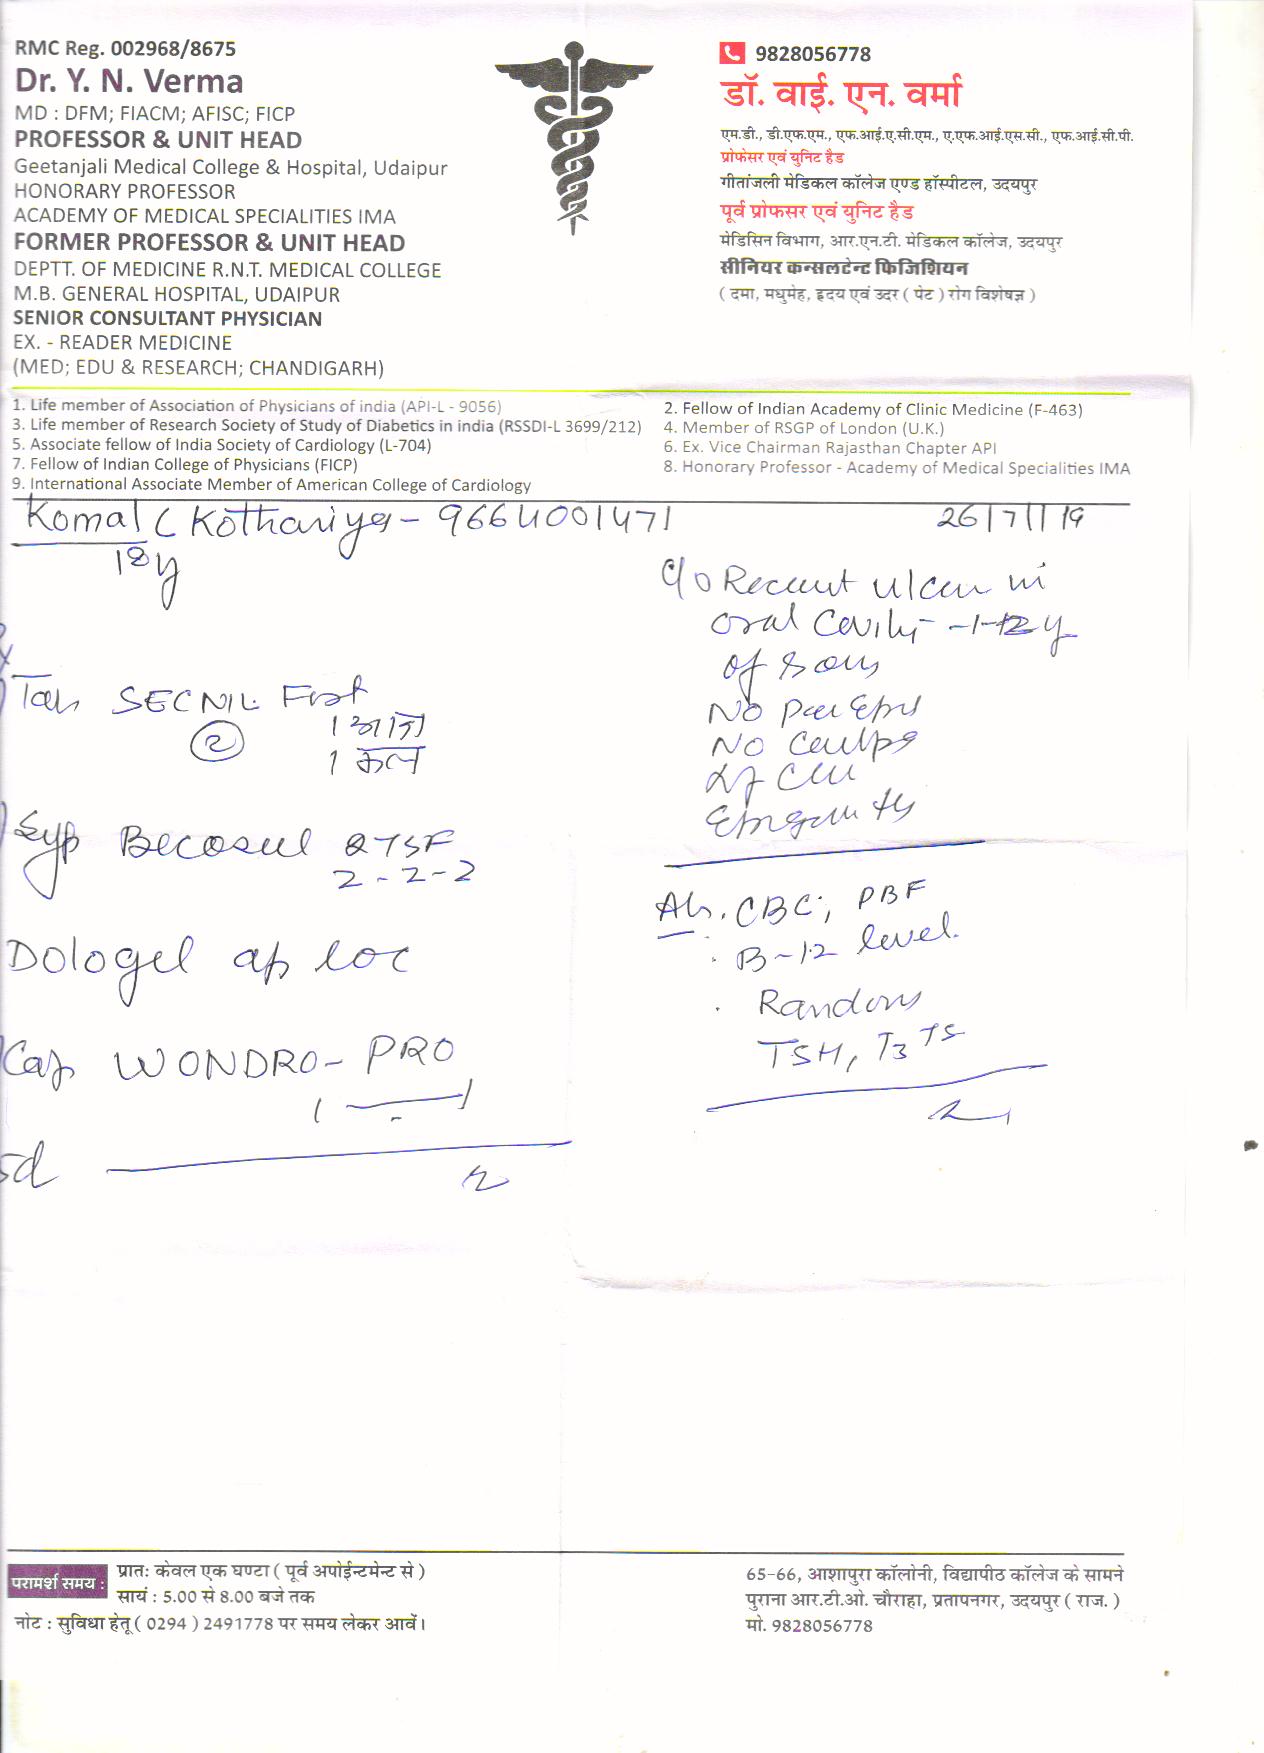 RMC Reg. 002968/8675
Dr. Y. N. Verma
MD : DFM; FIACM; AFISC; FICP
PROFESSOR & UNIT HEAD
Geetanjali Medical College & Hospital, Udaipur
HONORARY PROFESSOR
ACADEMY OF MEDICAL SPECIALITIES IMA
FORMER PROFESSOR & UNIT HEAD
DEPTT. OF MEDICINE R.N.T. MEDICAL COLLEGE
M.B. GENERAL HOSPITAL, UDAIPUR
SENIOR CONSULTANT PHYSICIAN
EX. - READER MEDICINE
(MED; EDU & RESEARCH; CHANDIGARH)
9828056778
डॉ. वाई. एन. वर्मा
एम.डी., डी.एफ.एम., एफ.आई.ए.सी.एम., ए.एफ.आई.एस.सी., एफ.आई.सी.पी.
प्रोफेसर एवं युनिट हैड
गीतांजली मेडिकल कॉलेज एण्ड हॉस्पीटल, उदयपुर
पूर्व प्रोफसर एवं युनिट हैड
मेडिसिन विभाग, आर.एन.टी. मेडिकल कॉलेज, उदयपुर
सीनियर कन्सलटेन्ट फिजिशियन
( दमा, मधुमेह, हृदय एवं उदर ( पेट ) रोग विशेषज्ञ )
1. Life member of Association of Physicians of india (API-L - 9056)
2. Fellow of Indian Academy of Clinic Medicine (F-463)
3. Life member of Research Society of Study of Diabetics in india (RSSDI-L 3699/212)
4. Member of RSGP of London (U.K.)
5. Associate fellow of India Society of Cardiology (L-704)
6. Ex. Vice Chairman Rajasthan Chapter API
7. Fellow of Indian College of Physicians (FICP)
8. Honorary Professor - Academy of Medical Specialities IMA
9. International Associate Member of American College of Cardiology
Komal C Kothariya - 9664001471
26/7/19
18y
Tab SECNIL Fort
(2)
1 आज
1 कल
Syp Becosul
2-2-2
Dologel ap loc
Cap WONDRO-PRO
1 — 1
c/o Recurrent ulcer in
oral cavity
of
No
No
CBC, PBF
B-12 level.
Random
TSH, T3
परामर्श समय :
प्रातः केवल एक घण्टा ( पूर्व अपोईन्टमेन्ट से )
सायं : 5.00 से 8.00 बजे तक
नोट : सुविधा हेतू ( 0294 ) 2491778 पर समय लेकर आवें।
65-66, आशापुरा कॉलोनी, विद्यापीठ कॉलेज के सामने
पुराना आर.टी.ओ. चौराहा, प्रतापनगर, उदयपुर ( राज. )
मो. 9828056778